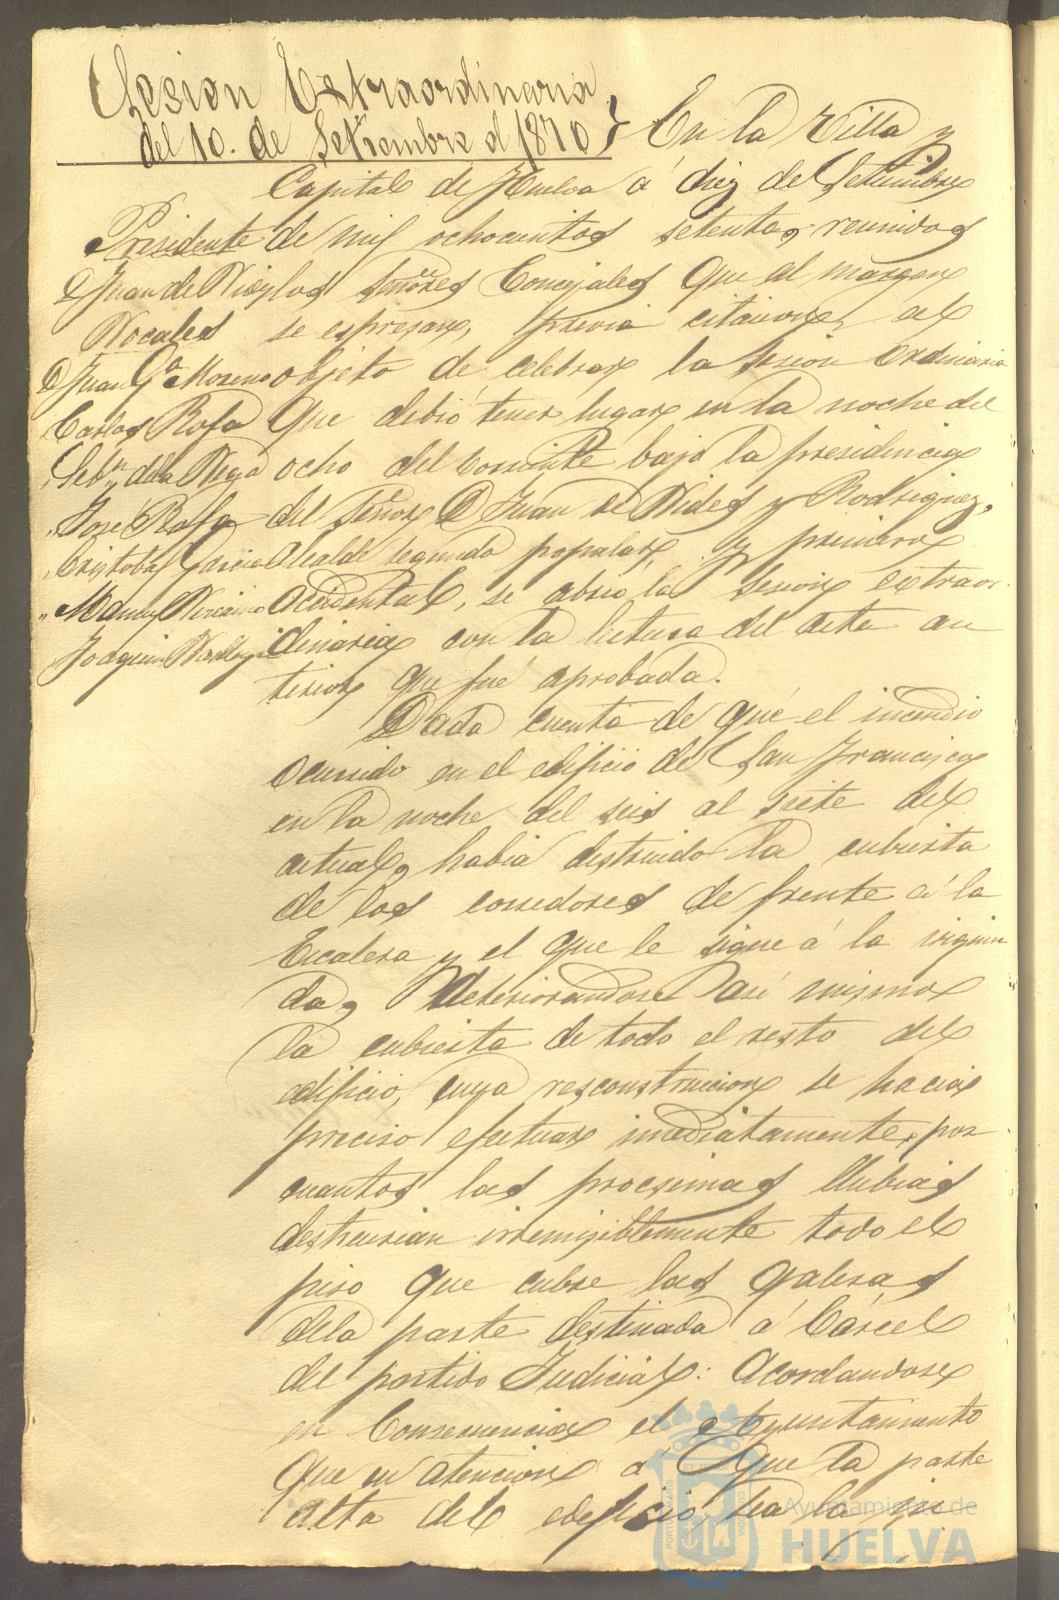 Sesion Extraordinaria
del 10. de Setiembre d 1870
En la Villa y
Capital de Huelva á diez de Setiembre
de mil ochocientos setenta, reunidos
los Señores Concejales que al margen
se espresan, previa citacion, al
objeto de celebrar la sesion ordinaria
que debió tener lugar en la noche del
ocho del corriente bajo la presidencia
del Señor D Juan de Vides y Rodriguez,
Alcalde segundo popular, y primero
accidental, se abrió la sesion extraor
dinaria con la lectura del acta an
terior que fué aprobada.
Presidente
D Juan de
Vocales
D Juan Gª Moreno
Carlos Rofa
Sebn. de la Vega
" José Rofa
" Cristobal Garcia
" Manuel
Joaquin
Dada cuenta de que el incendio
ocurrido en el edificio de San Francisco
en la noche del seis al siete del
actual, habia destruido la cubierta
de los corredores de frente á la
Escalera y el que le sigue á la izquier
da, deteriorandose asi mismo
la cubierta de todo el resto del
edificio, cuya resconstruccion se hacia
preciso efectuar imediatamente, por
cuantos las procsimas llubias
destruirian irremisiblemente todo el
piso que cubre las galeras
dela parte destinada á Cárcel
del partido Judicial: Acordandose
en Consecuencia el Ayuntamiento
que en atencion á que la parte
alta del edificio sea la
Ayuntamiento de
HUELVA